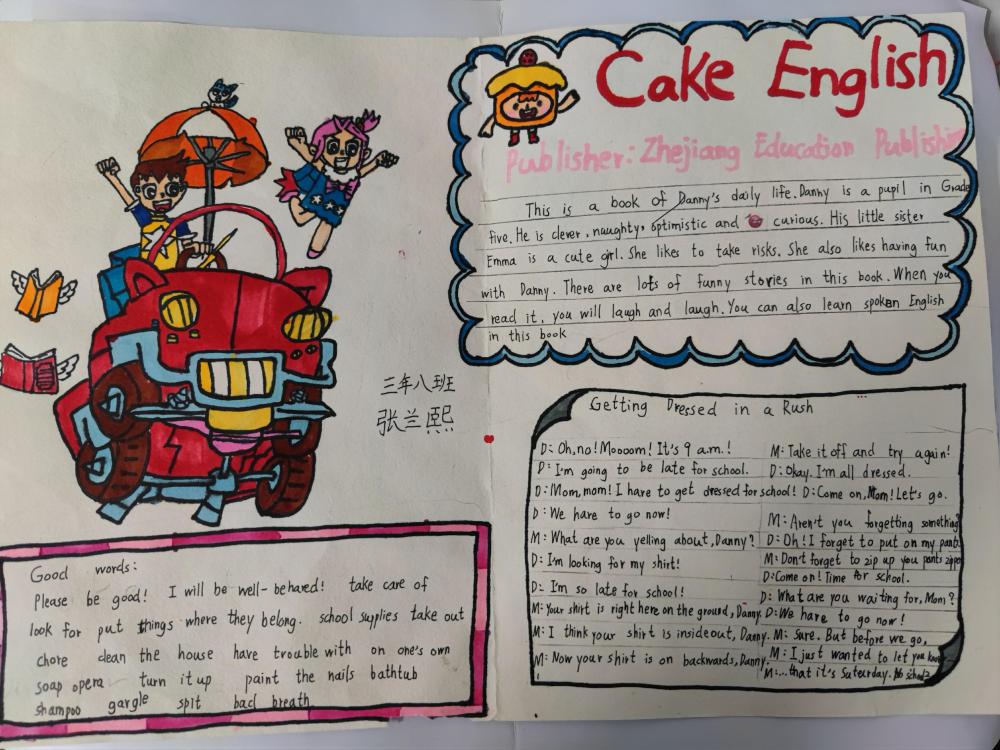 Cake English
Publisher: Zhejiang Education Publishin
This is a book of Danny's daily life. Danny is a pupil in Grade
five. He is clever, naughty, optimistic and curious. His little sister
Emma is a cute girl. She likes to take risks. She also likes having fun
with Danny. There are lots of funny stories in this book. When you
read it, you will laugh and laugh. You can also learn spoken English
in this book
三年八班
张兰熙
Getting Dressed in a Rush
D: Oh, no! Moooom! It's 9 a.m.!
D: I'm going to be late for school.
D: Mom, mom! I have to get dressed for school!
D: We hare to go now!
M: What are you yelling about, Danny?
D: I'm looking for my shirt!
D: I'm so late for school!
M: Your shirt is right here on the ground, Danny.
M: I think your shirt is inside out, Danny.
M: Now your shirt is on backwards, Danny.
M: Take it off and try again!
D: Okay. I'm all dressed.
D: Come on, Mom! Let's go.
M: Aren't you forgetting something
D: Oh! I forget to put on my pants.
M: Don't forget to zip up you pants zipper
D: Come on! Time for school.
D: What are you waiting for, Mom?
D: We hare to go now!
M: Sure. But before we go,
M: I just wanted to let you know
M: ...that it's Suterday. No school
Good words:
Please be good! I will be well-behared! take care of
look for put things where they belong. school supplies take out
chore clean the house have trouble with on one's own
soap opera turn it up paint the nails bathtub
shampoo gargle spit bad breath